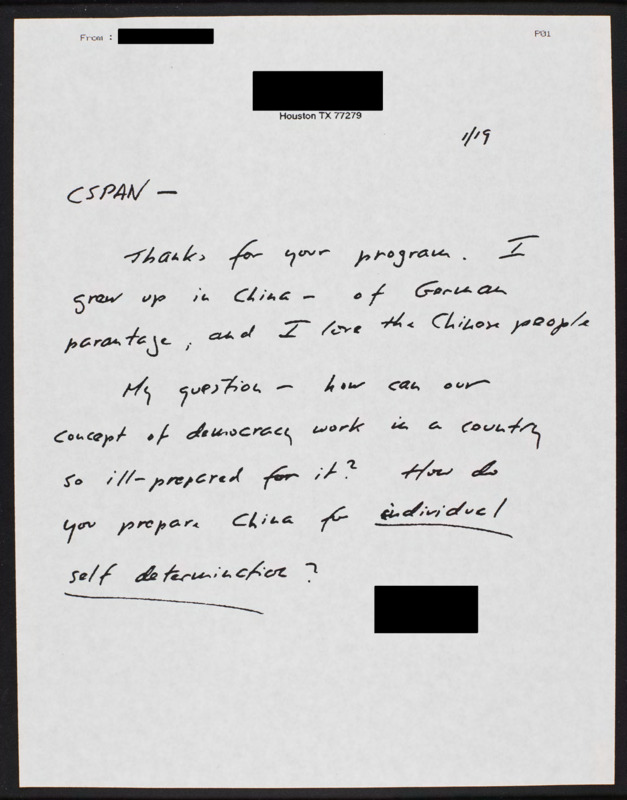 From :
P01
Houston TX 77279
1/19
CSPAN —
Thanks for your program. I
grew up in China — of German
parantage, and I love the Chinese people
My question — how can our
concept of democracy work in a country
so ill-prepared for it? How do
you prepare China for individual
self determination?